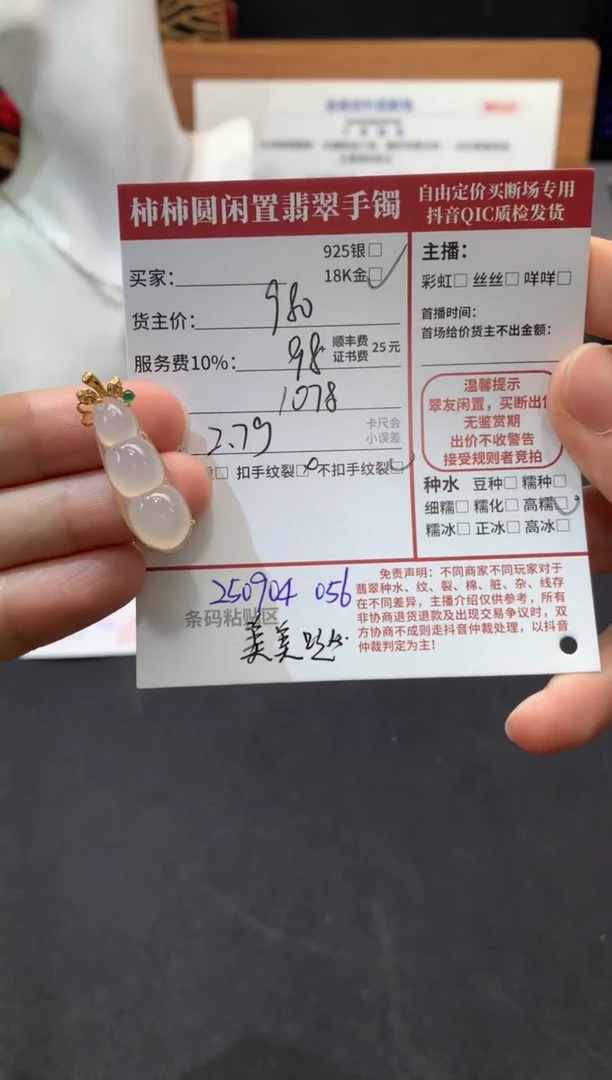 柿柿圆闲置翡翠手镯
自由定价买断场专用
抖音QIC质检发货
925银□
18K金□
买家:
货主价: 980
服务费10%: 98
顺丰费
证书费 25元
1078
2.79
卡尺会
小误差
□ 扣手纹裂□ 不扣手纹裂□
主播:
彩虹□ 丝丝□ 咩咩□
首播时间:
首场给价货主不出金额:
温馨提示
翠友闲置,买断出
无鉴赏期
出价不收警告
接受规则者竞拍
种水 豆种□ 糯种□
细糯□ 糯化□ 高糯□
糯冰□ 正冰□ 高冰□
250904 056
条码粘贴区
美美
免责声明:不同商家不同玩家对于
翡翠种水、纹、裂、棉、脏、杂、线存
在不同差异,主播介绍仅供参考,所有
非协商退货退款及出现交易争议时,双
方协商不成则走抖音仲裁处理,以抖音
仲裁判定为主!